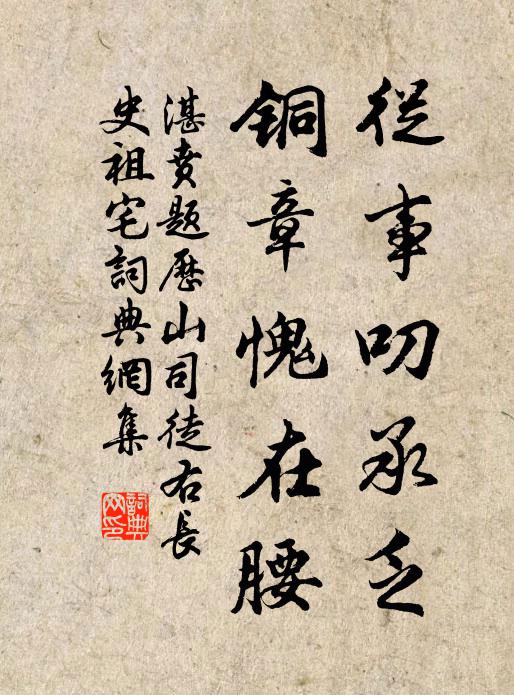 從事叨承乏
铜章愧在腰
湛賁题歷山司徒右長
史祖宅詞典網集
詞典
网印